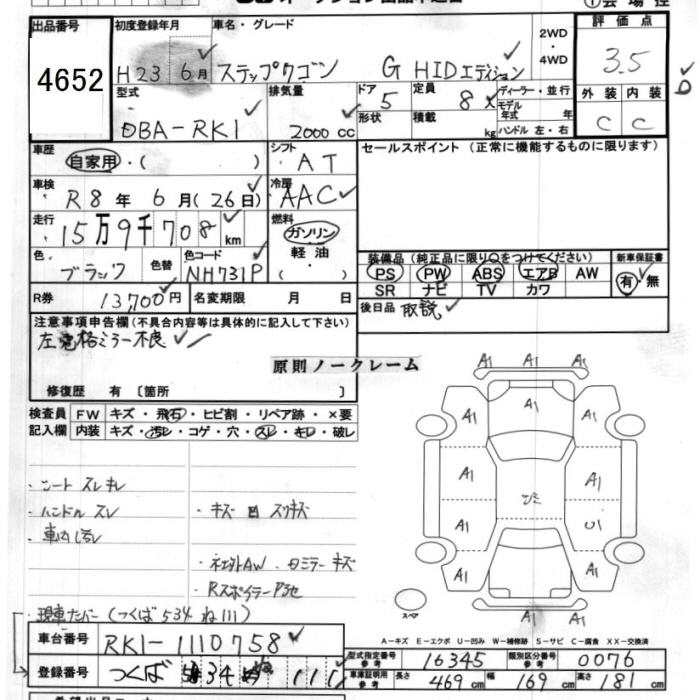 出品番号 初度登録年月 車名・グレード 2WD・4WD 評価点
4652 H23 6月 ステップワゴン G HIDエディション 3.5
型式 排気量 ドア 定員 ディーラー・並行 外装 内装
DBA-RK1 2000cc 5 8 モデル年式 年 C C
形状 積載 kg ハンドル 左・右
車歴 自家用・( ) シフト AT セールスポイント (正常に機能するものに限ります)
車検 R8年 6月(26日) 冷房 AAC
走行 15万9千708km 燃料 ガソリン
軽油・( )
色 ブラック 色替 色コード NH731P
装備品 (純正品に限り○をつけてください) 新車保証書
PS PW ABS エアB AW 有・無
SR ナビ TV カワ
R券 13,700円 名変期限 月 日 後日品 取説
注意事項申告欄 (不具合内容等は具体的に記入して下さい)
左電格ミラー不良
原則ノークレーム
修復歴 有 〔箇所 〕
検査員 FW キズ・飛石・ヒビ割・リペア跡・×要
記入欄 内装 キズ・汚レ・コゲ・穴・スレ・キレ・破レ
A1 A1 A1
A1 A1 A1
A1 A1
A1
A1 A1
A1 A1 A1
・シート スレ キレ
・ハンドル スレ
・車内汚レ
・キズ 凹 スリキズ
・社外AW
Rスポイラー
スペア
・現車ナンバー (つくば534 ね111)
車台番号 RK1-1110758
登録番号 つくば 534 ね 111
A－キズ E－エクボ U－凹み W－補修跡 S－サビ C－腐食 XX－交換済
型式指定番号 参考 16345 類別区分番号 参考 0076
車庫証明用 参考 長さ 469cm 幅 169cm 高さ 181cm